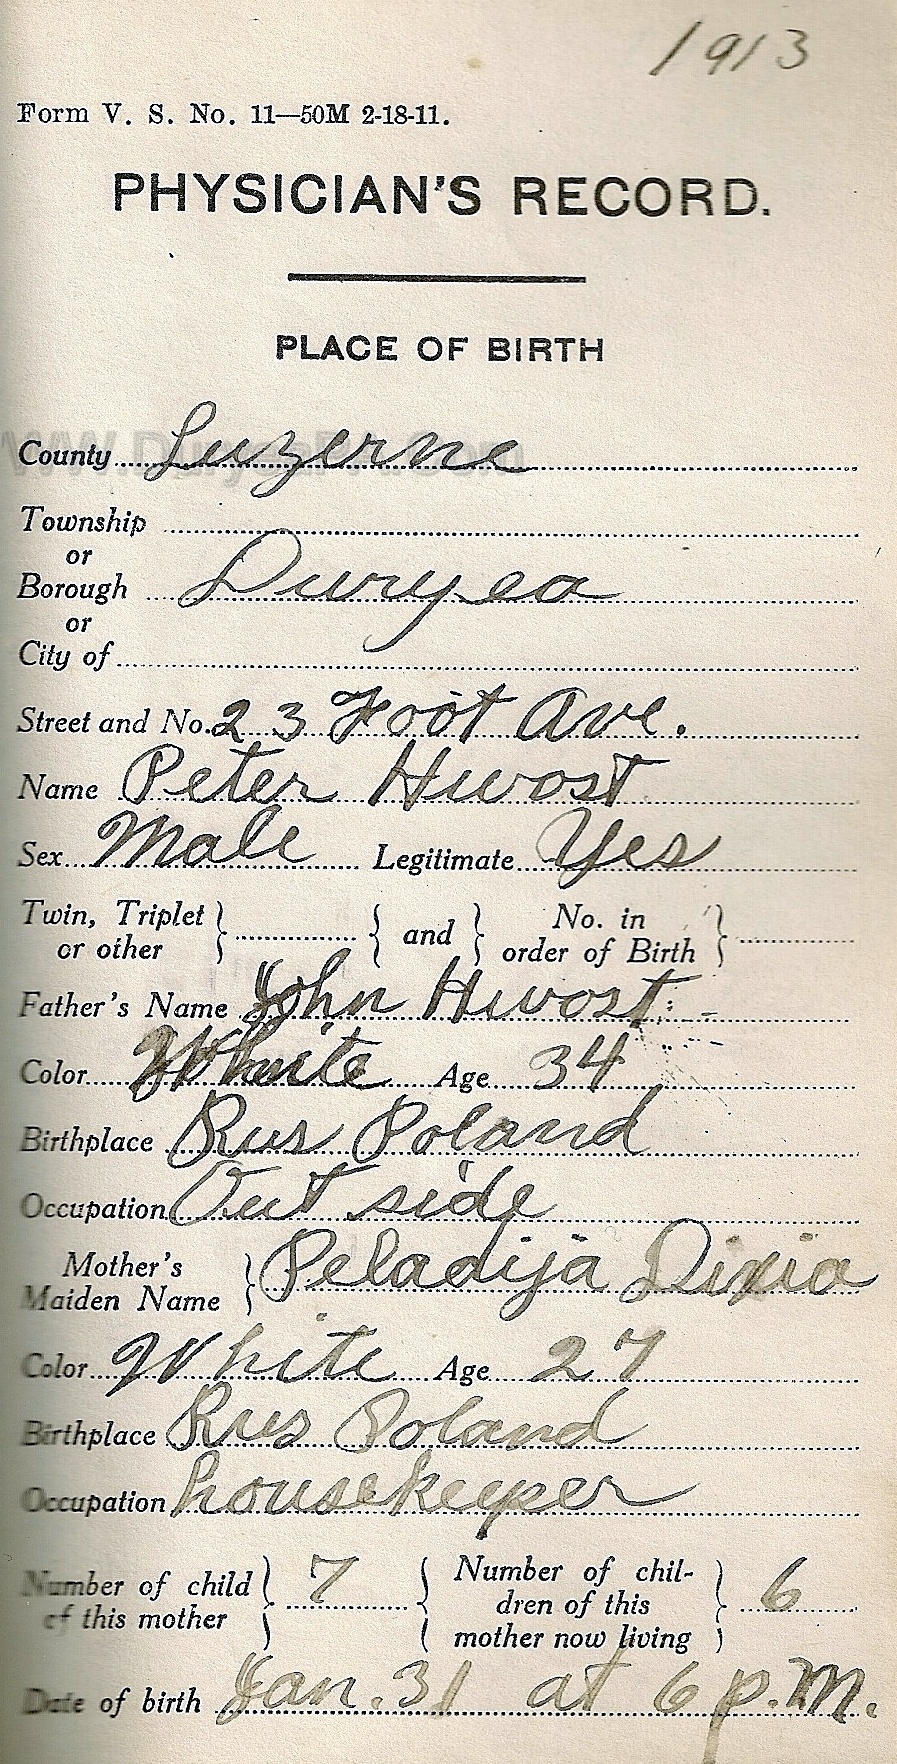 1913
Form V. S. No. 11—50M 2-18-11.
PHYSICIAN'S RECORD.
PLACE OF BIRTH
County Luzerne
Township
or
Borough Duryea
or
City of
Street and No. 23 Foot Ave.
Name Peter Hwost
Sex Male Legitimate Yes
Twin, Triplet or other } { and } No. in order of Birth }
Father's Name John Hwost
Color White Age 34
Birthplace Rus Poland
Occupation Out side
Mother's Maiden Name } Peladija
Color White Age 27
Birthplace Rus Poland
Occupation housekeeper
Number of child of this mother } 7 { Number of chil-dren of this mother now living } 6
Date of birth Jan. 31 at 6 p.m.